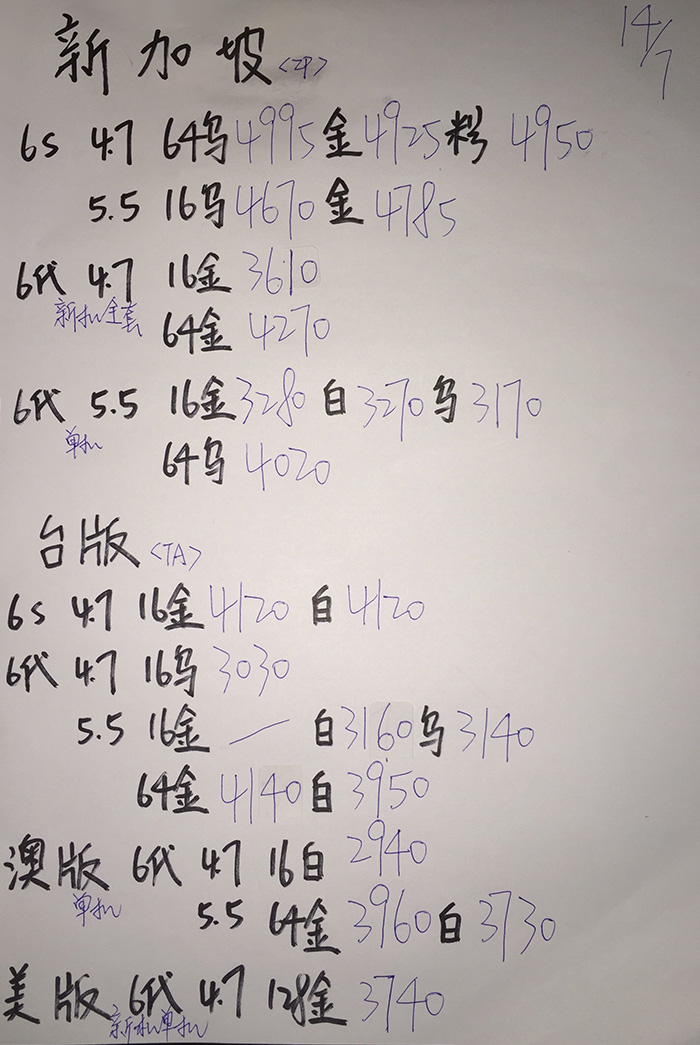 新加坡 <ZP>
14/7
6S 4.7 64乌4995金4925粉 4950
5.5 16乌4670金4785
6代 4.7 16金 3610
新机全套
64金 4270
6代 5.5 16金3280白3270乌3170
单机
64乌 4020
台版 <TA>
6S 4.7 16金4120 白4120
6代 4.7 16乌3030
5.5 16金 — 白3160乌3140
64金 4140白3950
澳版 6代 4.7 16白 2940
单机
5.5 64金3960白3730
美版 6代 4.7 128金 3740
新机单机